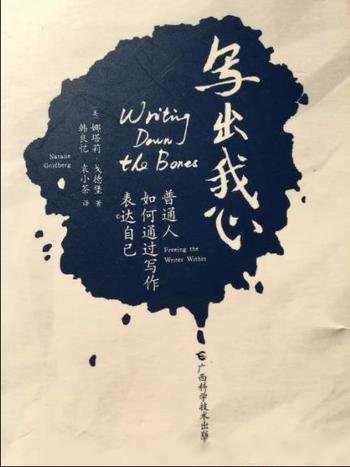 写出我心
Writing
Down
the Bones
Freeing the
Writer Within
普通人
如何通过写作
表达自己
[美] 娜塔莉·戈德堡 著
Natalie
Goldberg
韩良忆 袁小茶 译
广西科学技术出版社